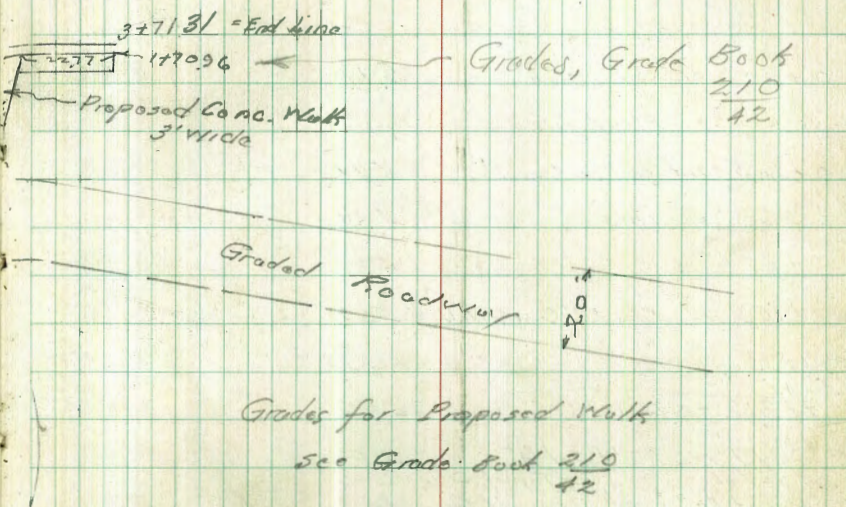 3+71 31 = End Line
22.77 1+70.96
Grades, Grade Book
210
42
Proposed Conc. Walk
3' Wide
Graded Roadway
20
Grades for Proposed Walk
see Grade Book 210
42